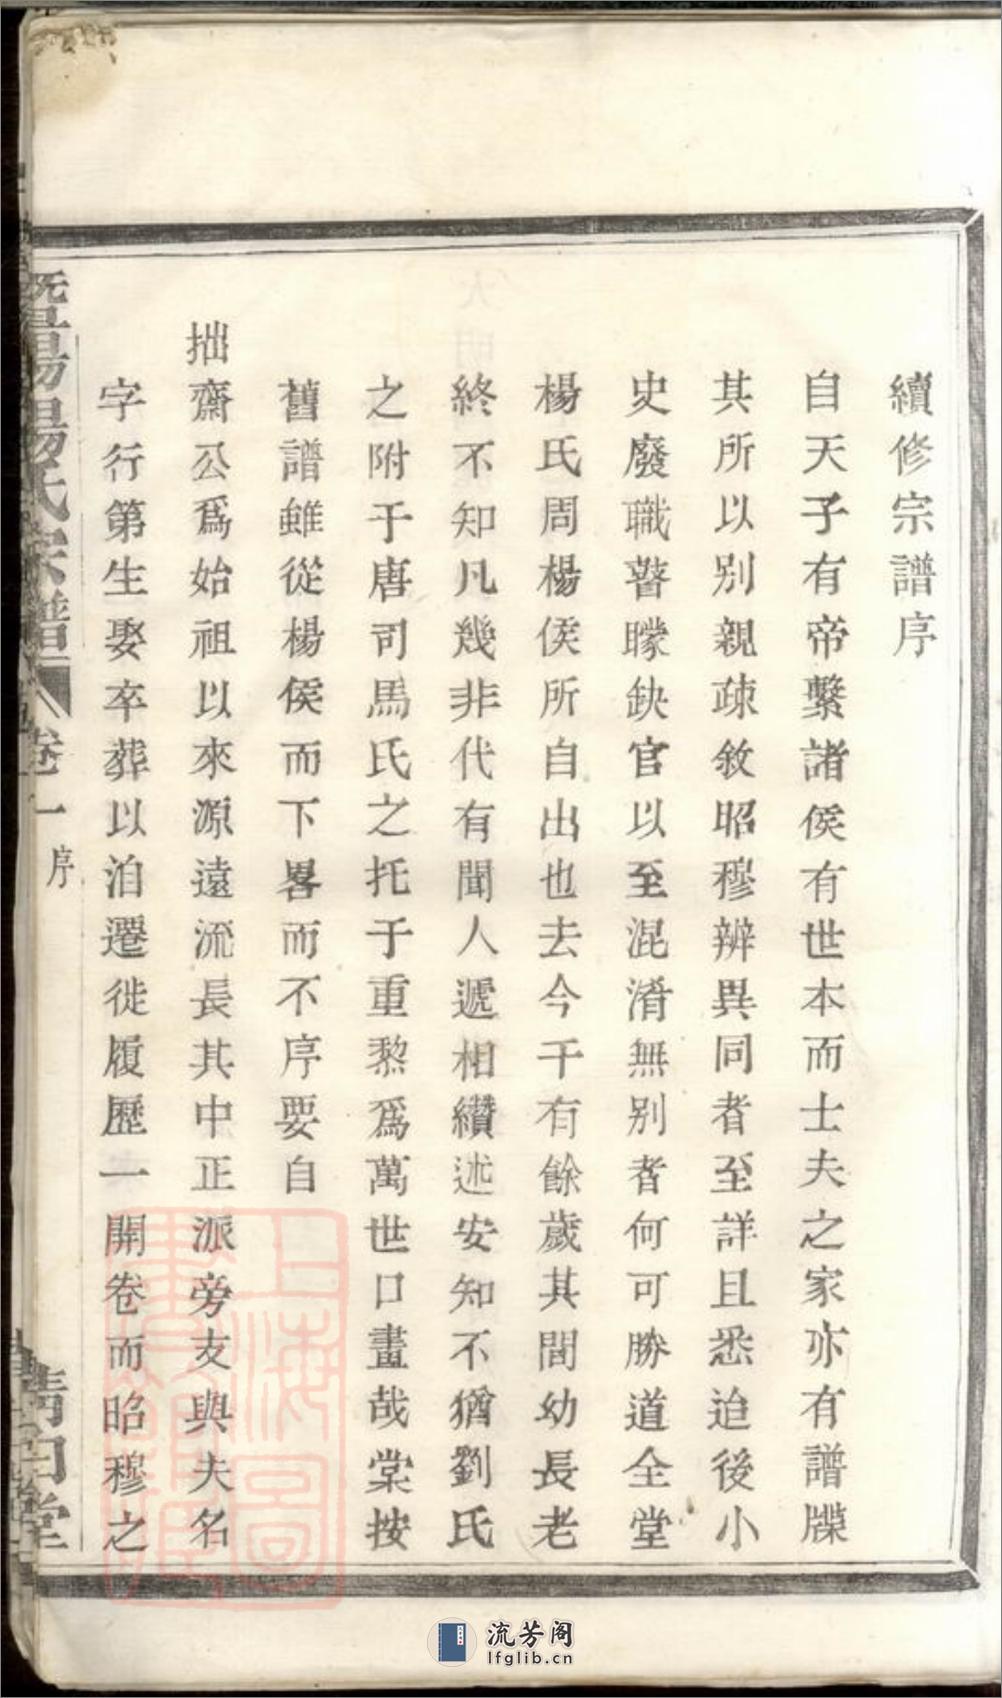 續修宗譜序
自天子有帝繫諸侯有世本而士夫之家亦有譜牒
其所以別親疎敘昭穆辨異同者至詳且悉迨後小
史廢職瞽矇缺官以至混淆無別者何可勝道全堂
楊氏周楊侯所自出也去今千有餘歲其間幼長老
終不知凡幾非代有聞人遞相纘述安知不猶劉氏
之附于唐司馬氏之托于重黎爲萬世口畫哉棠按
舊譜雖從楊侯而下畧而不序要自
拙齋公爲始祖以來源遠流長其中正派旁支與夫名
字行第生娶卒葬以洎遷徙履歷一開卷而昭穆之
暨陽楊氏宗譜 卷一 序 清白堂
上海圖書館藏
流芳阁
lfglib.cn